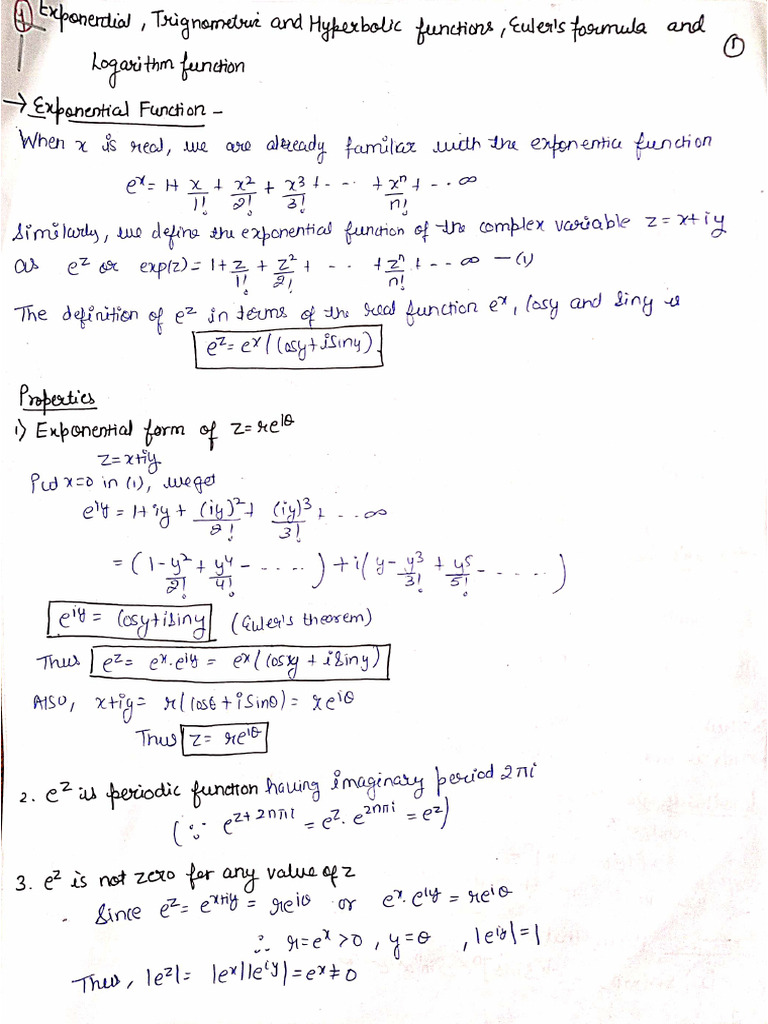 1 Exponential, Trignometric and Hyperbolic functions, Euler's formula and
Logarithm function
1
→ Exponential Function -
When x is real, we are already familiar with the exponentia function
e^x = 1 + x/1! + x^2/2! + x^3/3! + - .. + x^n/n! + - .. ∞
Similarly, we define the exponential function of the complex variable z = x+iy
as e^z or exp(z) = 1 + z/1! + z^2/2! + - .. + z^n/n! + - - ∞ — (1)
The definition of e^z in terms of the real function e^x, Cosy and Siny is
e^z = e^x (Cosy + iSiny).
Properties
1) Exponential form of z = re^iθ
z = x+iy.
Put x=0 in (1), we get
e^iy = 1 + iy + (iy)^2/2! + (iy)^3/3! + - .. ∞
= (1 - y^2/2! + y^4/4! - .....) + i(y - y^3/3! + y^5/5! - .....)
e^iy = Cosy + iSiny (Euler's theorem)
Thus e^z = e^x.e^iy = e^x (Cosxy + iSiny)
Also, x+iy = r(Cosθ + iSinθ) = re^iθ
Thus z = re^iθ
2. e^z is periodic function having imaginary period 2πi
(∵ e^z+2nπi = e^z. e^2nπi = e^z)
3. e^z is not zero for any value of z
Since e^z = e^x+iy = re^iθ or e^x. e^iy = re^iθ
∴ r = e^x > 0, y = θ, |e^iy| = 1
Thus, |e^z| = |e^x||e^iy| = e^x ≠ 0